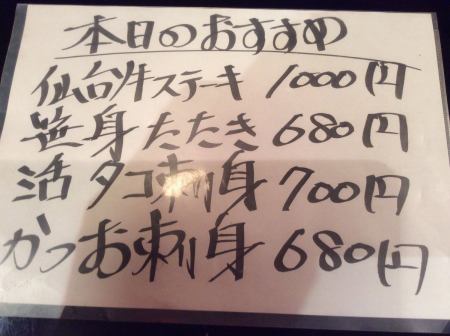 本日のおすすめ
仙台牛ステーキ 1000円
笹身たたき 680円
活タコ刺身 700円
かつお刺身 680円